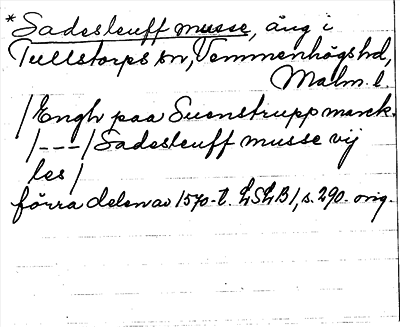 *Sadesleuff musse, äng i
Tullstorps sn, Vemmenhögs hd,
Malm. l.
/Engh paa Suenstrupp marck.
/---/Sadesleuff musse vij
les/
förra delen av 1570-t. LSLB1, s. 290. orig.